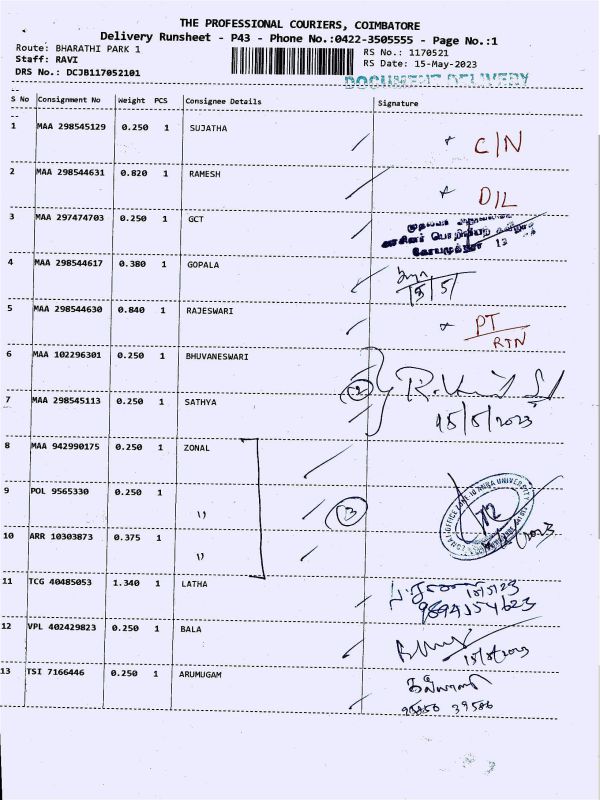 THE PROFESSIONAL COURIERS, COIMBATORE
Delivery Runsheet - P43 - Phone No.:0422-3505555 - Page No.:1
Route: BHARATHI PARK 1 RS No.: 1170521
Staff: RAVI RS Date: 15-May-2023
DRS No.: DCJB117052101
DOCUMENT DELIVERY
S No Consignment No Weight PCS Consignee Details Signature
1 MAA 298545129 0.250 1 SUJATHA C/N
2 MAA 298544631 0.820 1 RAMESH D/L
3 MAA 297474703 0.250 1 GCT
கோயமுத்தூர் 13
4 MAA 298544617 0.380 1 GOPALA
15/5/
5 MAA 298544630 0.840 1 RAJESWARI PT
RTN
6 MAA 102296301 0.250 1 BHUVANESWARI
7 MAA 298545113 0.250 1 SATHYA 2
15/5/2023
8 MAA 942990175 0.250 1 ZONAL
9 POL 9565330 0.250 1 " 3
10 ARR 10303873 0.375 1 "
11 TCG 40485053 1.340 1 LATHA 15/5/23
9894154623
12 VPL 402429823 0.250 1 BALA
15/5/2023
13 TSI 7166446 0.250 1 ARUMUGAM